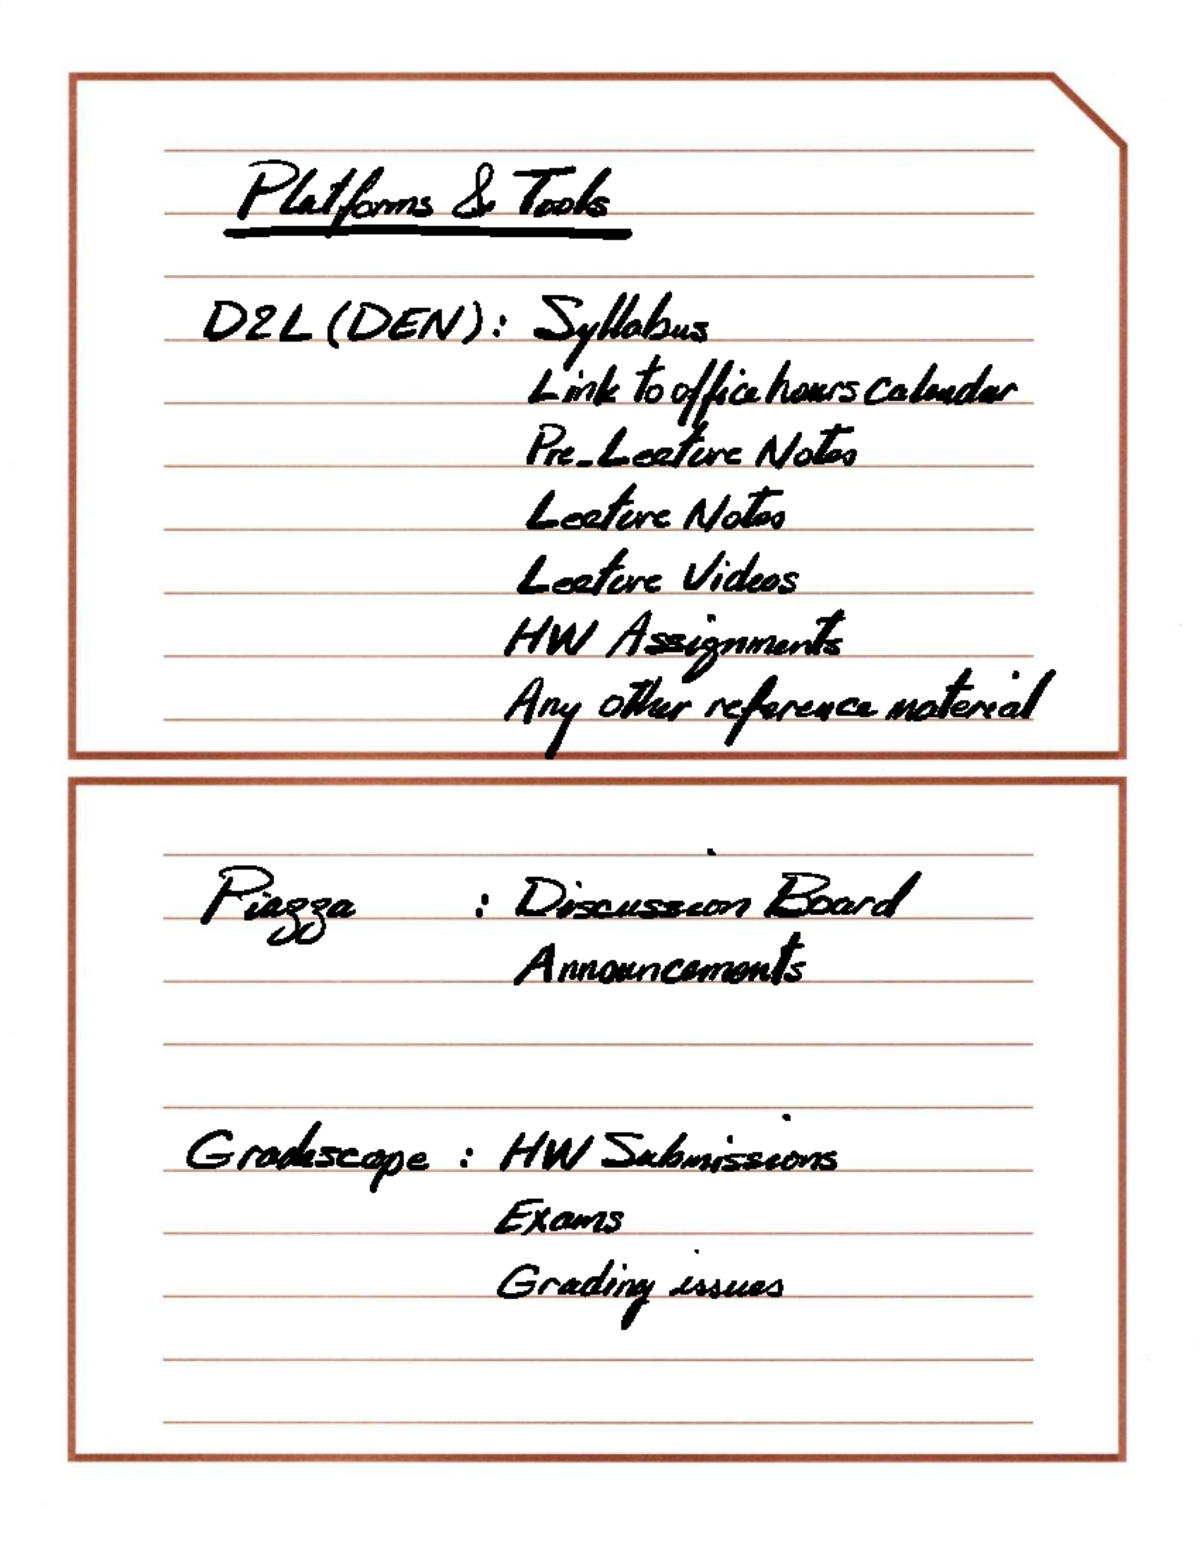 Platforms & Tools
D2L (DEN): Syllabus
Link to office hours calendar
Pre-Lecture Notes
Lecture Notes
Lecture Videos
HW Assignments
Any other reference material
Piazza : Discussion Board
Announcements
Gradescope : HW Submissions
Exams
Grading issues